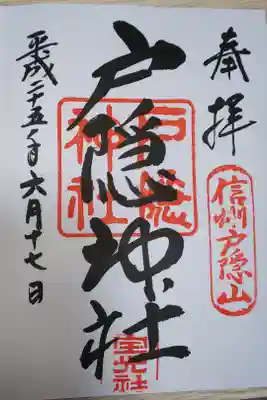 奉拝
信州戸隠山
戸隠神社
戸隠神社
宝光社
平成二十五年六月十七日